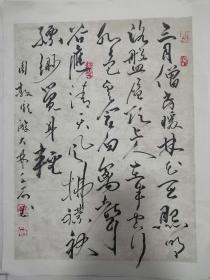 三月僧房暖林花互照明
路盘层顶上人在半空行
水色云含白禽声
谷应清天风拂襟袂
缥缈觉身轻
周敦颐游大林